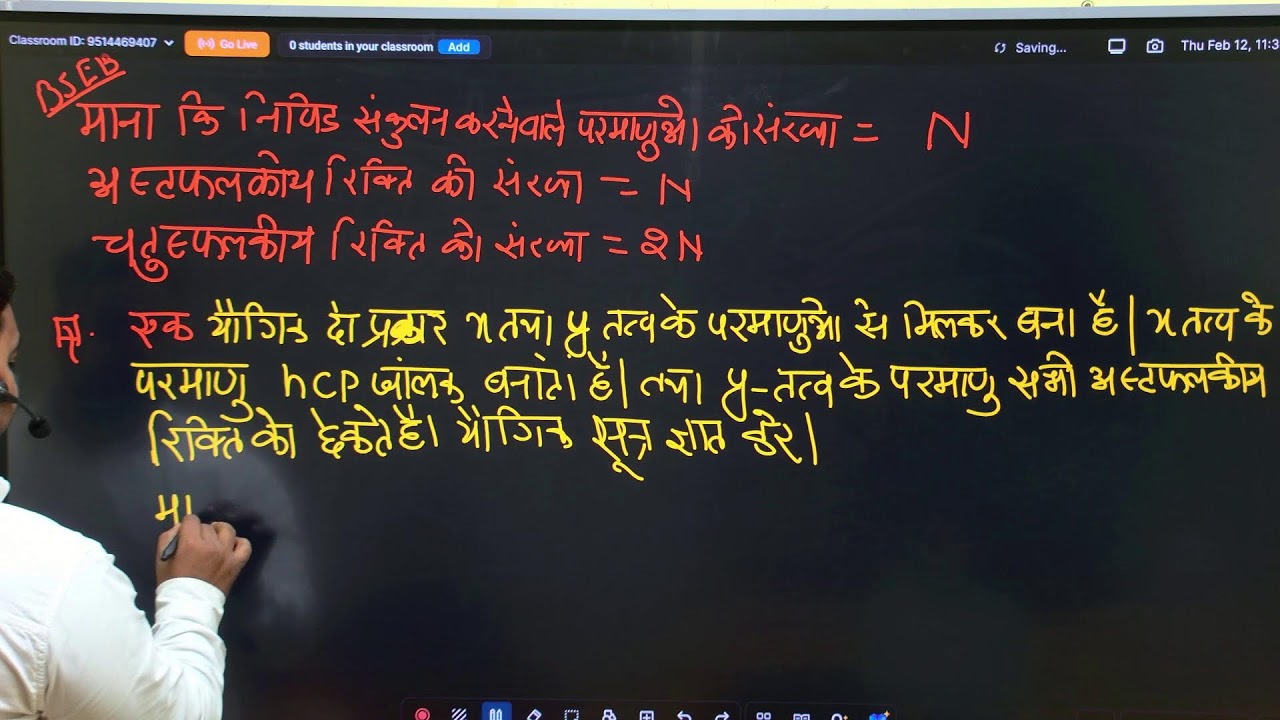 Classroom ID: 9514469407 Go Live 0 students in your classroom Add Saving... Thu Feb 12, 11:3
BSEB
माना कि निविड संकुलन करनेवाले परमाणुओ की संख्या = N
अस्टफलकीय रिक्ति की संख्या = N
चतुस्फलकीय रिक्ति की संख्या = 2N
Q. एक यौगिक दो प्रकार x तथा y तत्व के परमाणुओ से मिलकर बना है। x तत्व के
परमाणु hcp जालक बनाता है। तथा y-तत्व के परमाणु सभी अस्टफलकीय
रिक्ति को छेकते है। यौगिक सूत्र ज्ञात करे।
मा